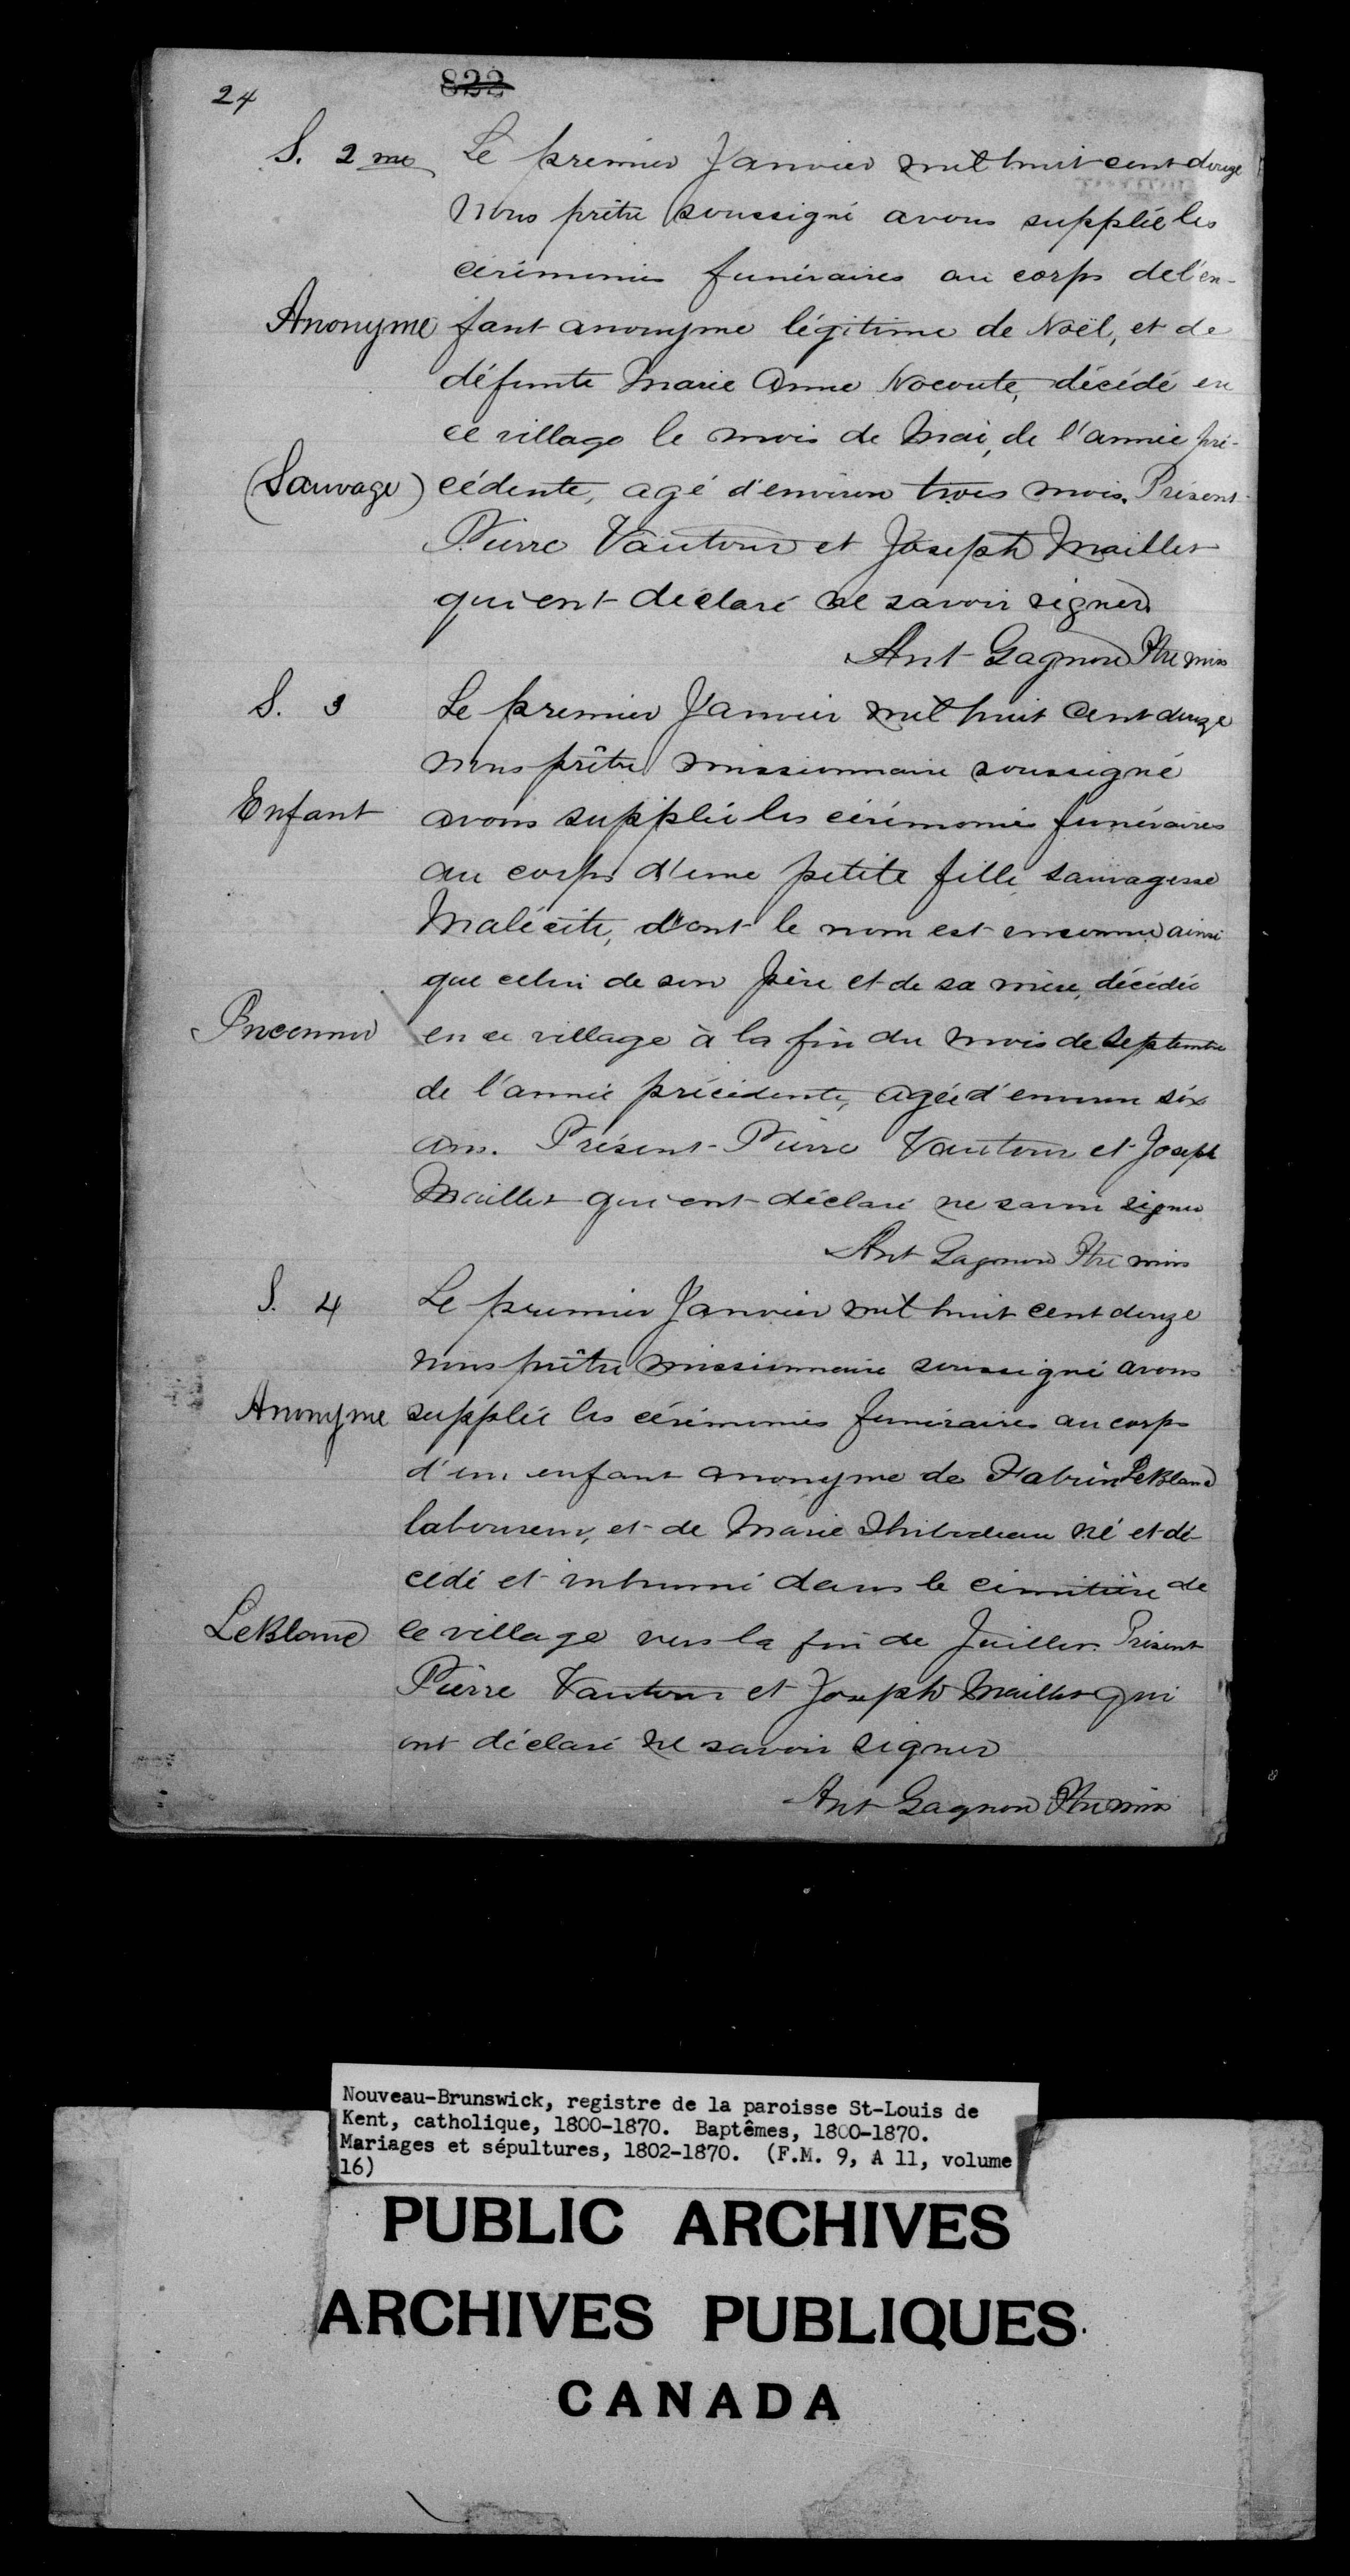 24
822
S. 2 me Le premier Janvier mil huit cent douze
Nous prêtre soussigné avons supplée les
cérémonies funéraires au corps de l'en-
Anonyme fant anonyme légitime de Noël, et de
défunte Marie Anne Nocoute, décédé en
ce village le mois de Mai, de l'année pré-
(Sauvage) cédente, agé d'environ trois mois. Présent
Pierre Vautour et Joseph Maillet
qui ont déclaré ne savoir signer
Ant Gagnon Ptre miss
S. 3 Le premier Janvier mil huit Cent douze
nous prêtre missionnaire soussigné
Enfant avons supplée les cérémonies funéraires
au corps d'une petite fille sauvagesse
Malécite, dont le nom est inconnu ainsi
que celui de son père et de sa mère, décédée
Inconnu en ce village à la fin du mois de Septembre
de l'année précédente, agée d'environ six
ans. Présent Pierre Vautour et Joseph
Maillet qui ont déclaré ne savoir signer
Ant Gagnon Ptre miss
S. 4 Le premier Janvier mil huit cent douze
nous prêtre missionnaire soussigné avons
Anonyme supplée les cérémonies funéraires au corps
d'un enfant anonyme de LeBlanc
laboureur, et de Marie Thibodeau né et dé-
cédé et inhumé dans le cimitière de
LeBlanc ce village vers la fin de Juillet. Présent
Pierre Vautour et Joseph Maillet qui
ont déclaré ne savoir signer
Ant Gagnon Ptre miss
Nouveau-Brunswick, registre de la paroisse St-Louis de
Kent, catholique, 1800-1870. Baptêmes, 1800-1870.
Mariages et sépultures, 1802-1870. (F.M. 9, A 11, volume
16)
PUBLIC ARCHIVES
ARCHIVES PUBLIQUES
CANADA